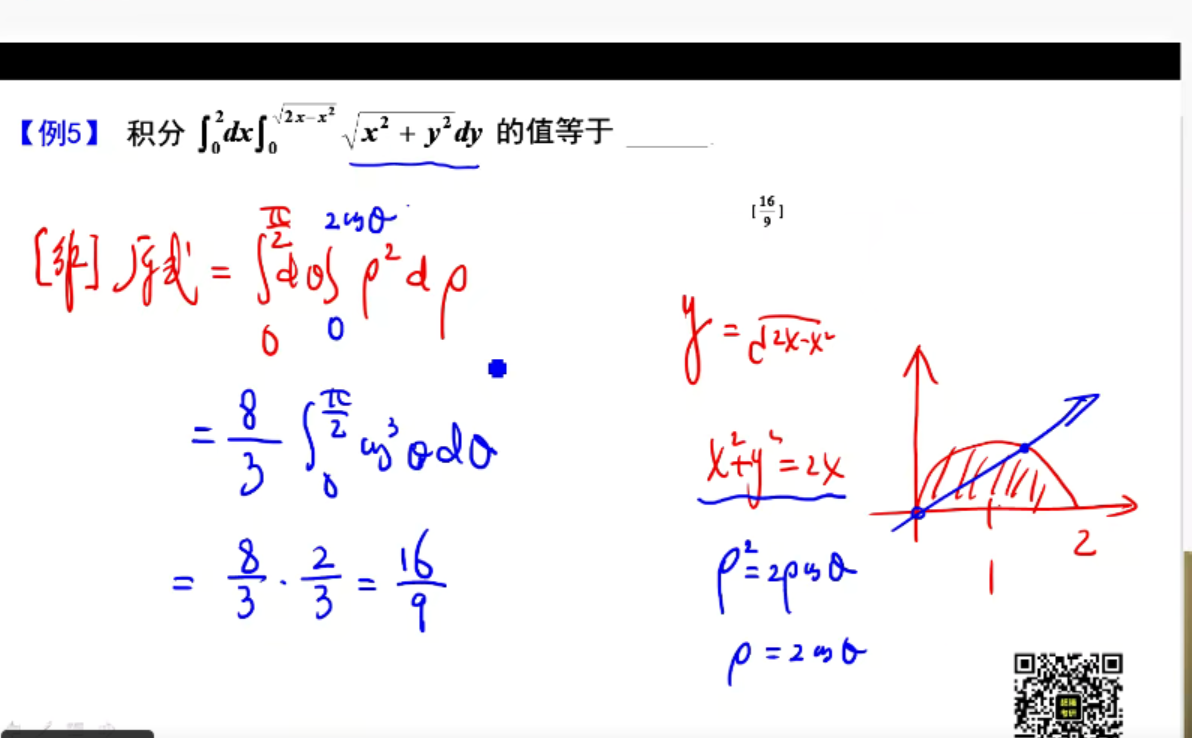 【例5】 积分 ∫₀²dx∫₀^{√(2x−x²)} √(x² + y²)dy 的值等于 ______.
[16/9]
[解] 原式 = ∫₀^{π/2} dθ ∫₀^{2cosθ} ρ² dρ
y = √(2x-x²)
= 8/3 ∫₀^{π/2} cos³θdθ
x²+y²=2x
= 8/3 · 2/3 = 16/9
ρ²=2ρcosθ
ρ=2cosθ
1
2